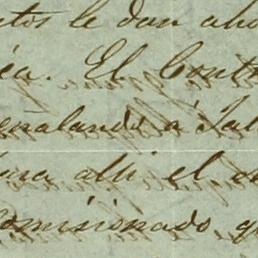 tos le dan aho
ea. El Cont
eñalando á Jal
ara alli el
omisionado q